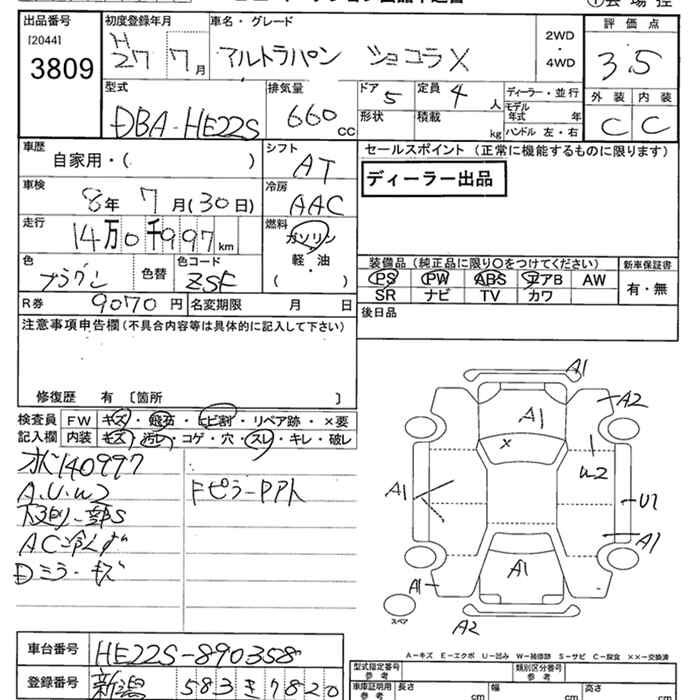 出品番号
[2044]
3809
初度登録年月
H
27 7 月
車名・グレード
アルトラパン ショコラX
2WD
・
4WD
評価点
3.5
外装 内装
C C
型式
DBA-HE22S
排気量
660 CC
ドア 5
形状
定員 4 人
積載 kg
ディーラー・並行
モデル
年式 年
ハンドル 左・右
車歴
自家用・( )
シフト
AT
セールスポイント (正常に機能するものに限ります)
ディーラー出品
車検
8年 7月(30日)
冷房
AAC
走行
14万0千997km
燃料
ガソリン
軽・油
( )
色
ブラウン
色替
色コード
ZSF
装備品 (純正品に限り○をつけてください)
PS PW ABS エアB AW
SR ナビ TV カワ
新車保証書
有・無
R券 9070円 名変期限 月 日
後日品
注意事項申告欄 (不具合内容等は具体的に記入して下さい)
修復歴 有 〔箇所 〕
検査員 FW キズ・飛石・ヒビ割・リペア跡・×要
記入欄 内装 キズ・汚レ・コゲ・穴・スレ・キレ・破レ
140997
A.U.W2
下廻り一部S
AC冷えず
Dミラーキズ
FピラーPアト
A1
A2
A1
×
W2
A1
U1
A1
A1
A1
A2
スペア
A-キズ E-エクボ U-凹み W-補修跡 S-サビ C-腐食 ××-交換済
車台番号 HE22S-890358
登録番号 新潟 583 き 7820
型式指定番号
参考
類別区分番号
参考
車庫証明用
参考
長さ cm 幅 cm 高さ cm